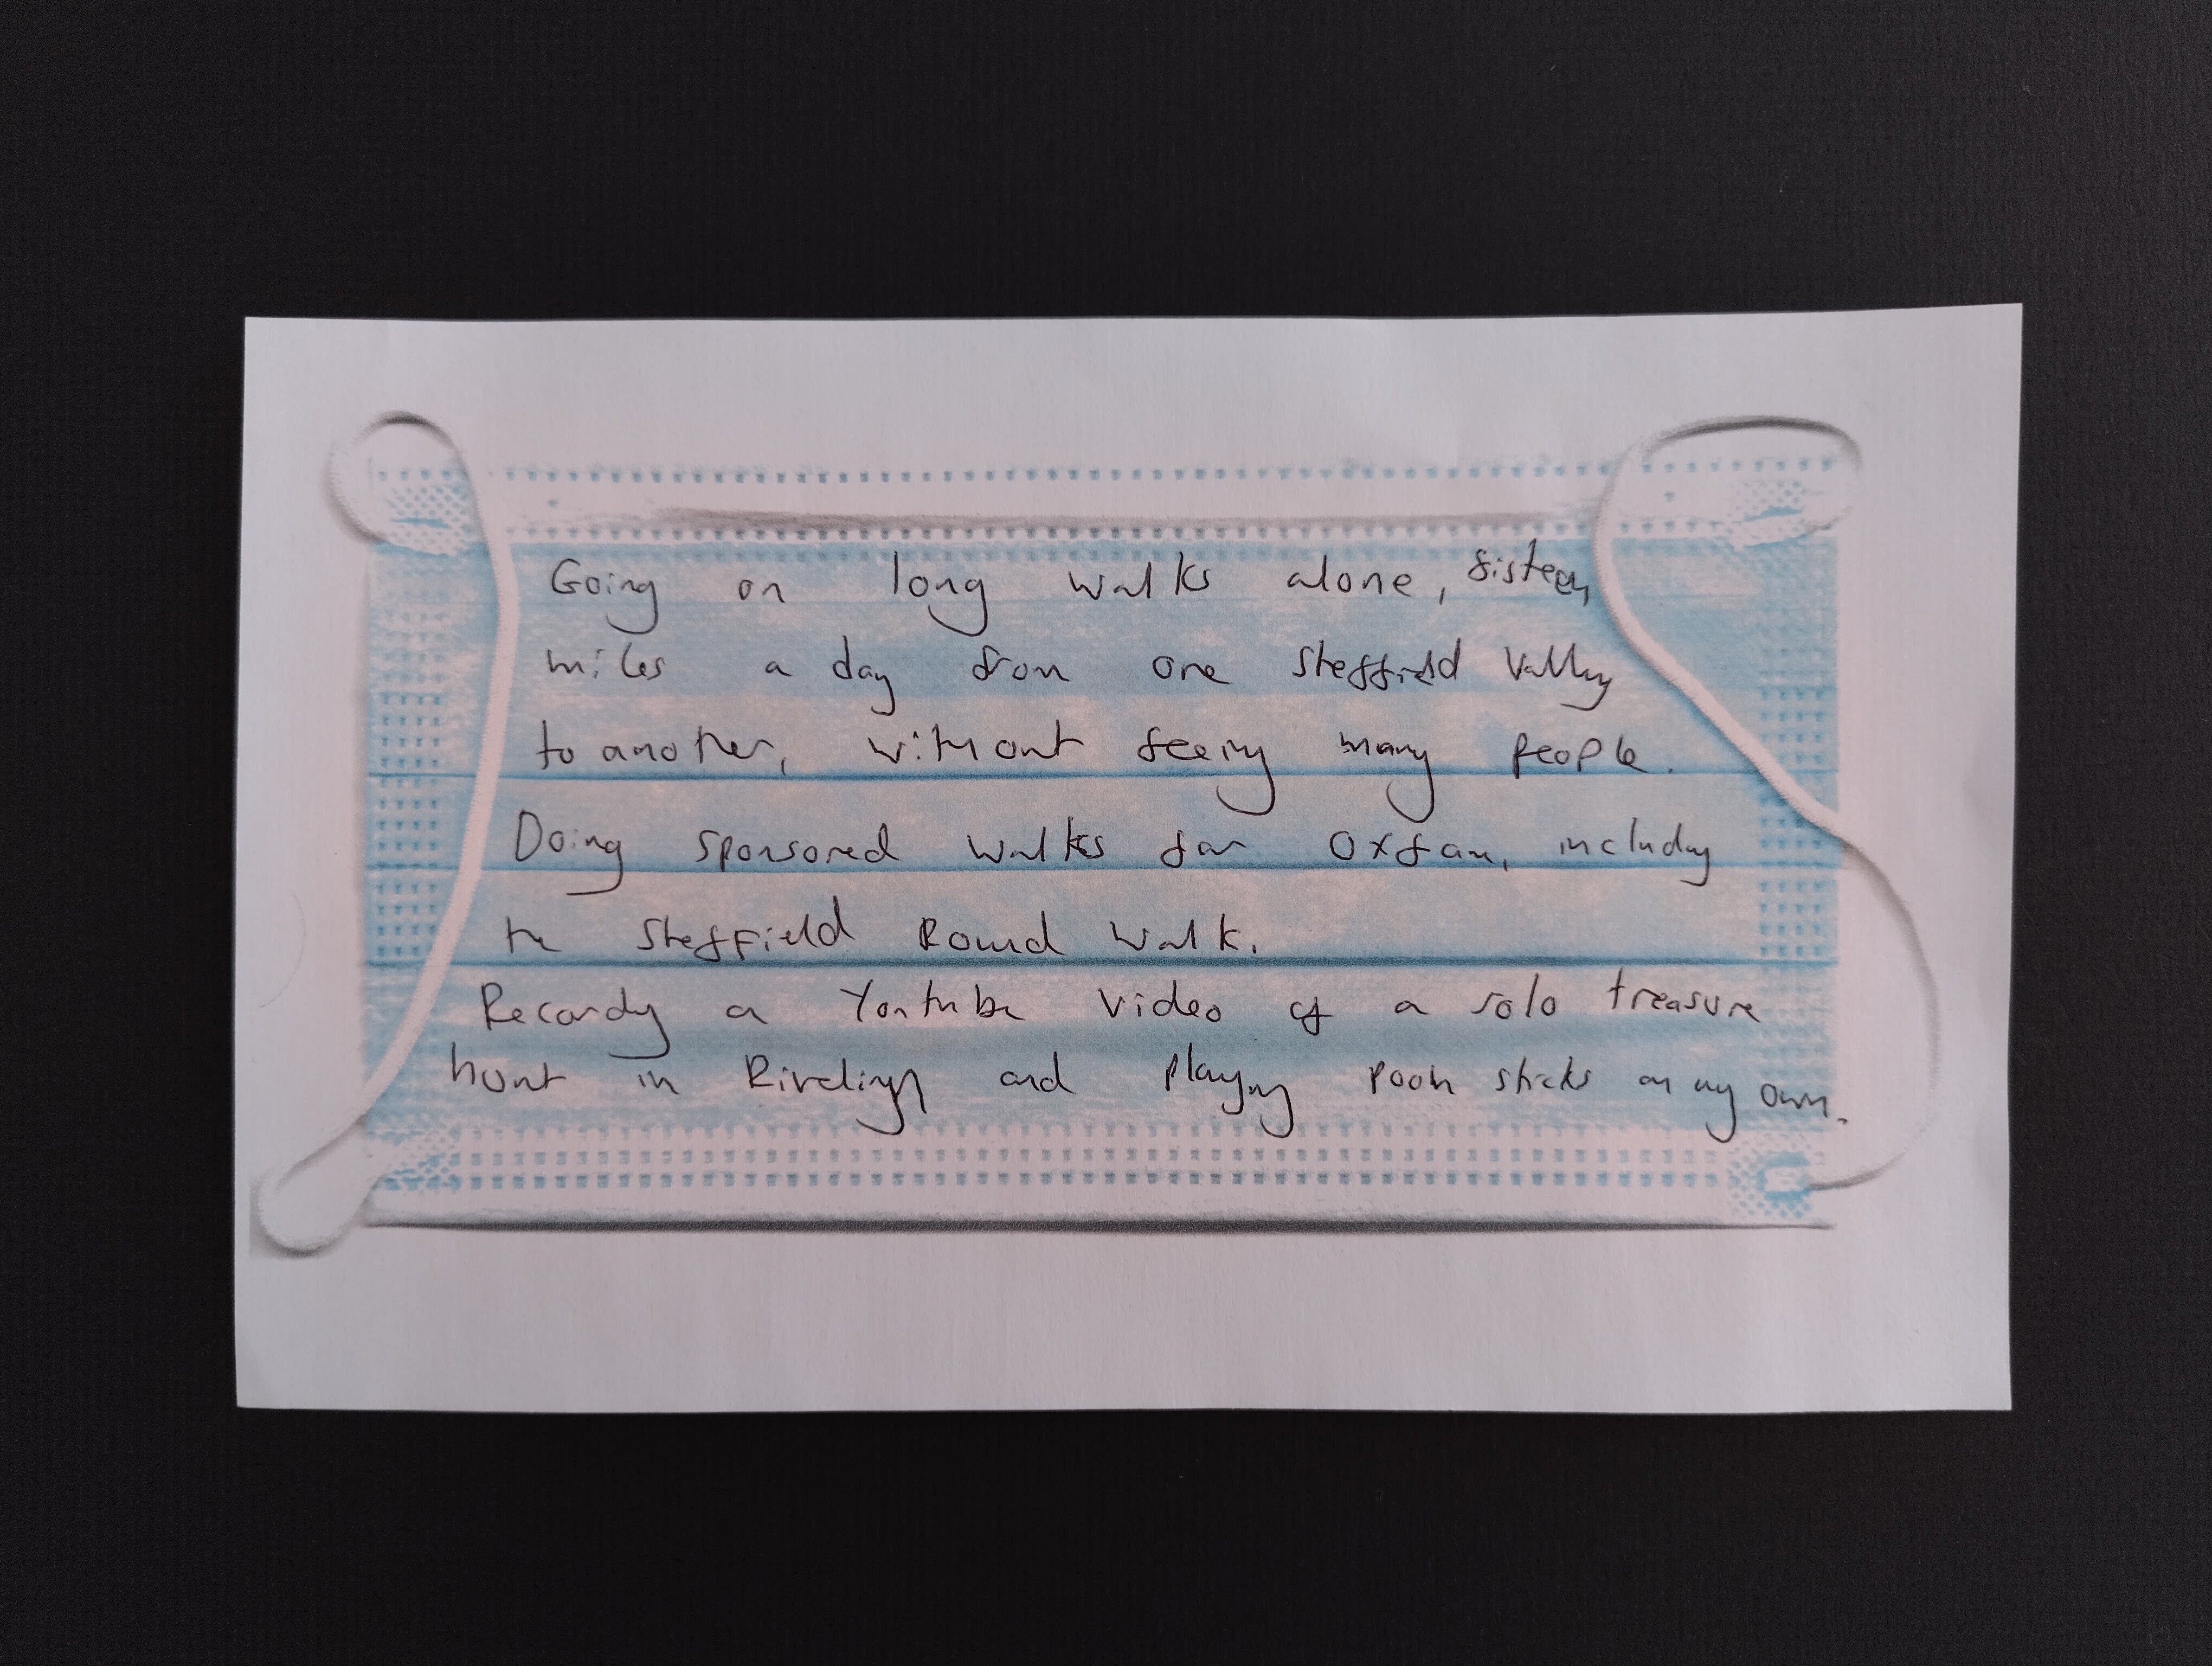 Going on long walks alone, fifteen
miles a day from one Sheffield Valley
to another, without seeing many people.
Doing sponsored walks for Oxfam, including
the Sheffield Round Walk.
Recording a Youtube video of a solo treasure
hunt in Rivelin and playing Pooh sticks on my own.